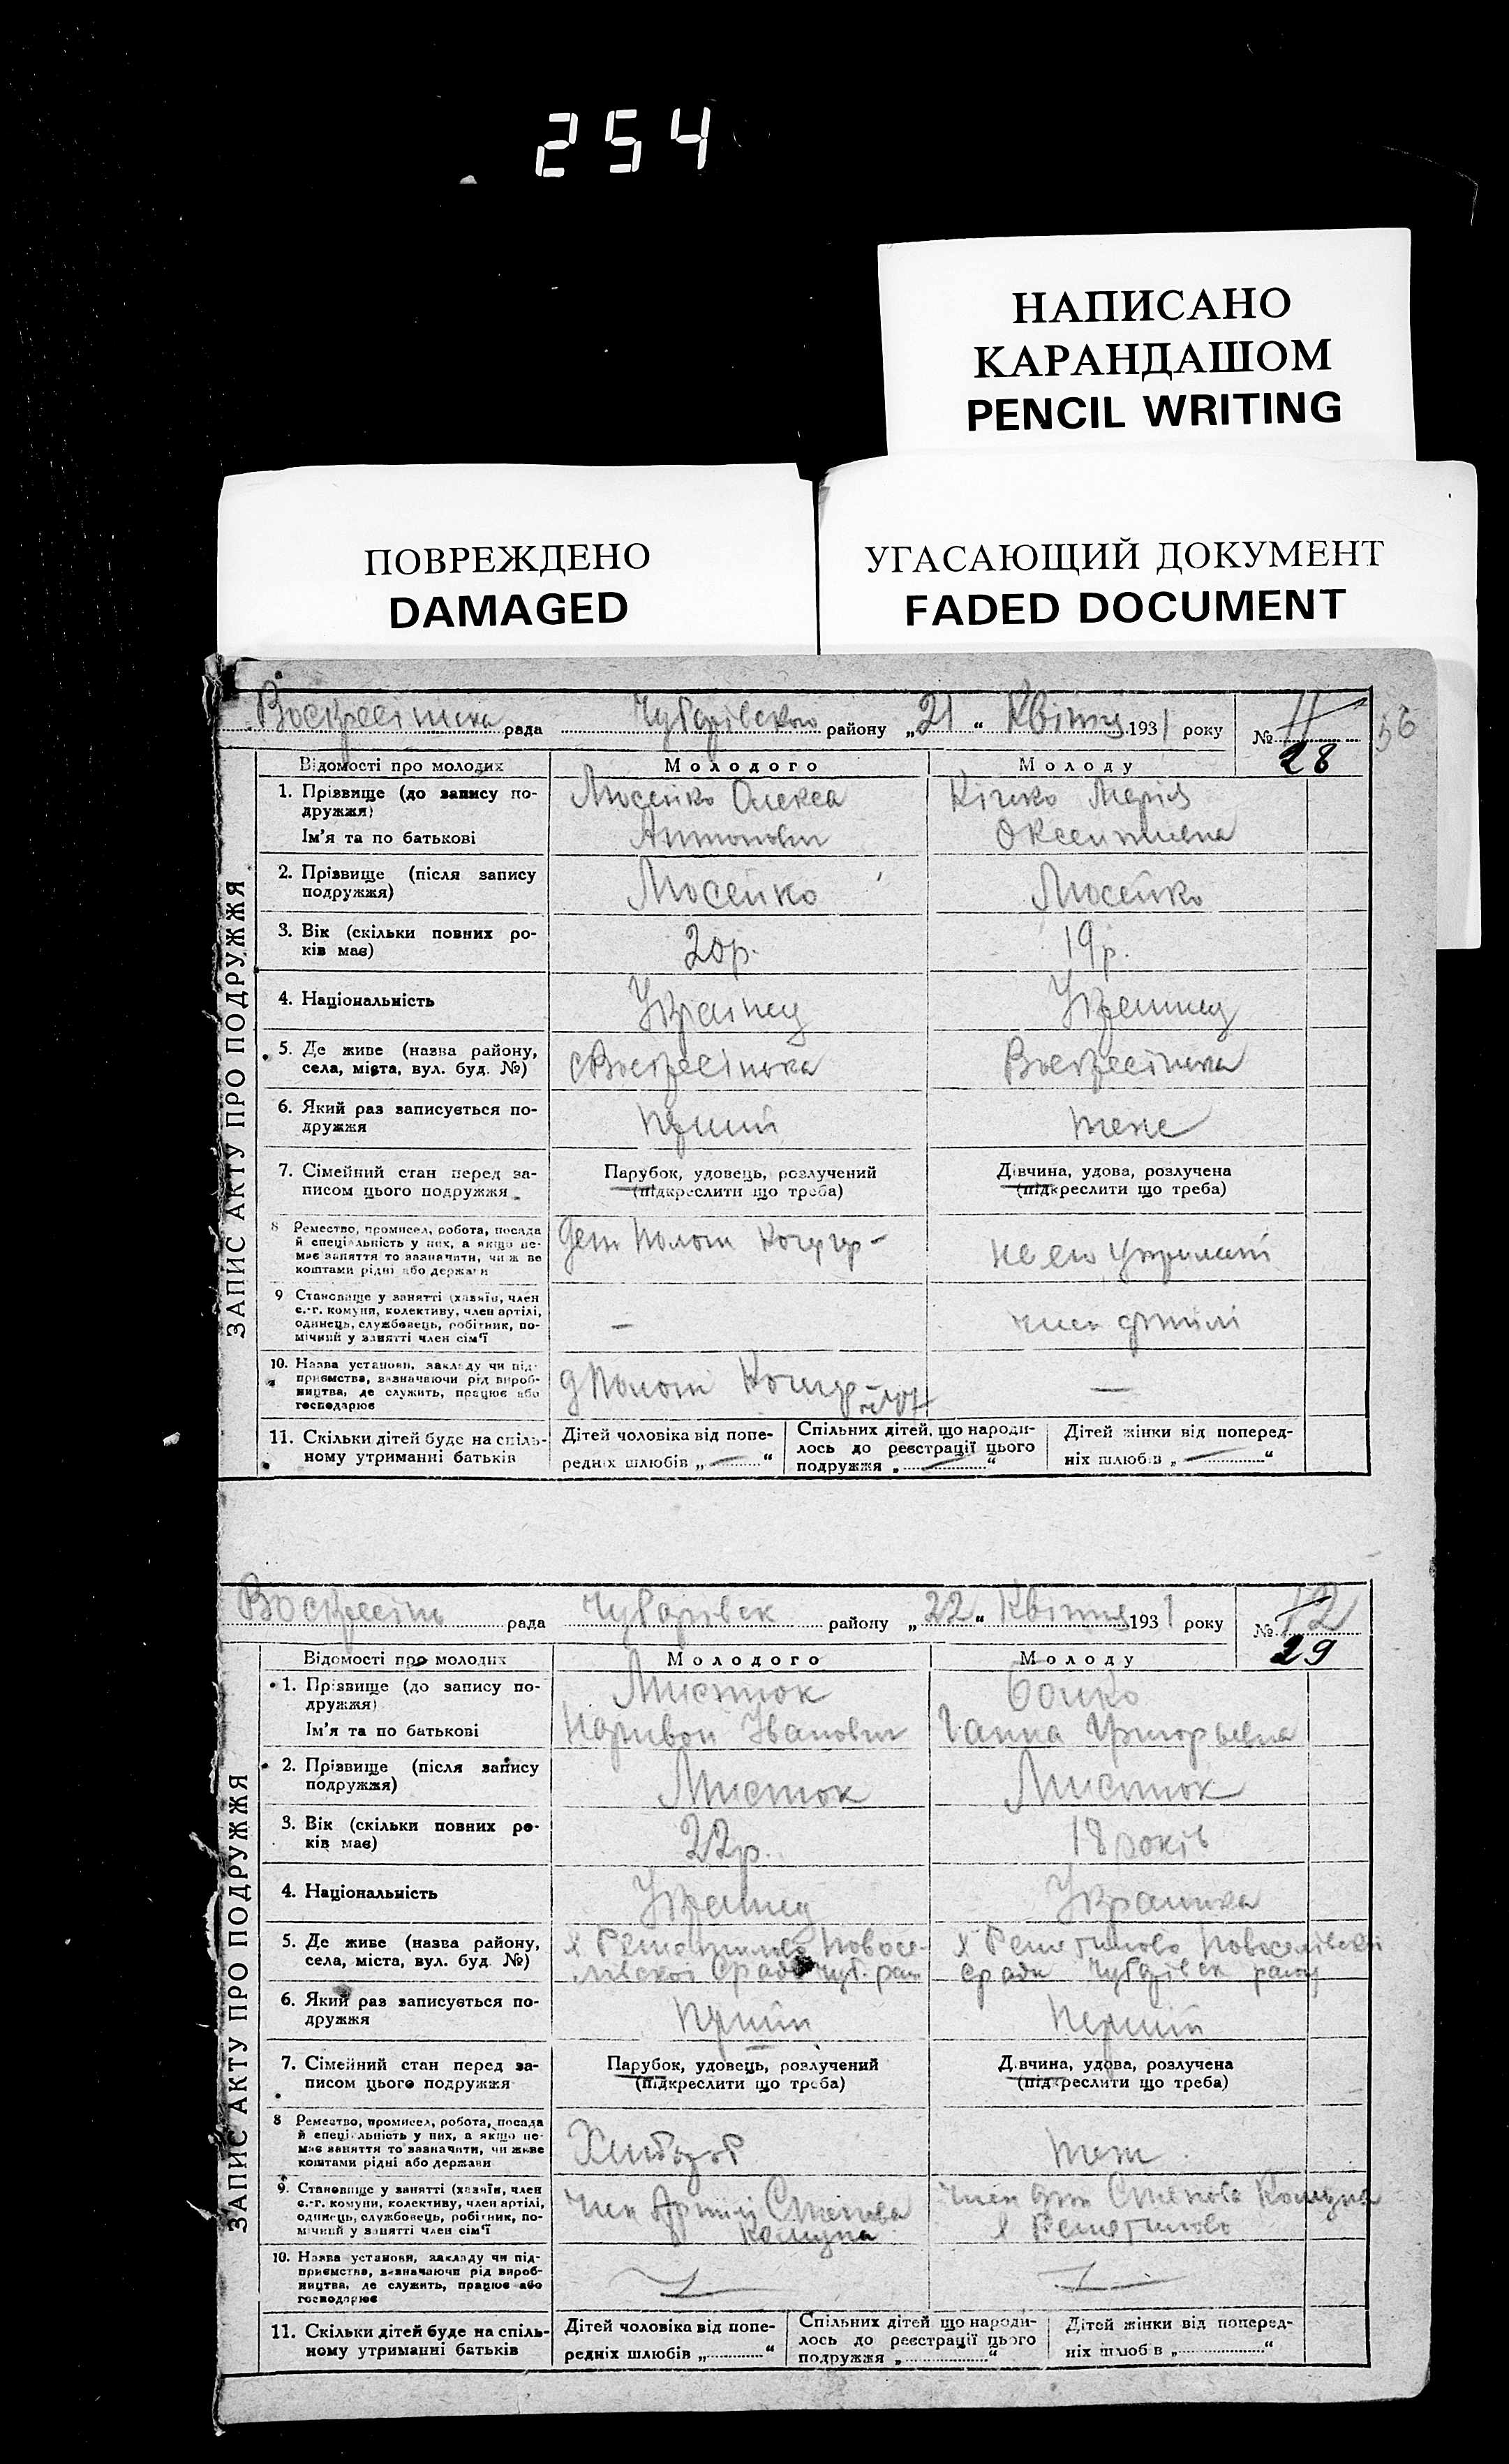 254
НАПИСАНО
КАРАНДАШОМ
PENCIL WRITING
ПОВРЕЖДЕНО
DAMAGED
УГАСАЮЩИЙ ДОКУМЕНТ
FADED DOCUMENT
Воскресінська рада Чубарівського району „21“ Квітня 1931 року № 11 56
28
ЗАПИС АКТУ ПРО ПОДРУЖЖЯ
Відомості про молодих Молодого Молоду
1. Прізвище (до запису по-
дружжя)
Ім'я та по батькові
Мосейко Олекса
Антонович
Кічко Марія
Оксентиевна
2. Прізвище (після запису
подружжя)
Мосейко Мосейко
3. Вік (скільки повних ро-
ків має)
20р. 19р.
4. Національність Українец Украинец
5. Де живе (назва району,
села, міста, вул. буд. №)
с Воскресінька Воскресінька
6. Який раз записується по-
дружжя
перший теже
7. Сімейний стан перед за-
писом цього подружжя
Парубок, удовець, розлучений
(підкреслити що треба)
Дівчина, удова, розлучена
(підкреслити що треба)
8 Ремество, промисел, робота, посада
й спеціальність у них, а якщо не-
має заняття то зазначити, чи ж ве
коштами рідні або держави
9 Становище у занятті (хазяїн, член
с.-г. комуни, колективу, член артілі,
одинець, службовець, робітник, по-
мічний у занятті член сім'ї
— член артілі
10. Назва установи, закладу чи під-
приємства, визначаючи рід вироб-
ництва, де служить, працює або
господарює
—
11. Скільки дітей буде на спіль-
ному утриманні батьків
Дітей чоловіка від попе-
редніх шлюбів „—“
Спільних дітей, що народи-
лось до реєстрації цього
подружжя „—“
Дітей жінки від поперед-
ніх шлюбів „—“
Воскресінь рада Чубарівськ району „22“ Квітня 1931 року № 12
29
ЗАПИС АКТУ ПРО ПОДРУЖЖЯ
Відомості про молодих Молодого Молоду
1. Прізвище (до запису по-
дружжя)
Ім'я та по батькові
Мистюк
Наривон Іванович
Бойко
Ганна Григорьевна
2. Прізвище (після запису
подружжя)
Мистюк Мистюк
3. Вік (скільки повних ро-
ків має)
22р. 18 років
4. Національність Украинец Украинка
5. Де живе (назва району,
села, міста, вул. буд. №)
х Решетилово Новосе-
лівской с ради Чуб. рай
х Решетилово Новоселівской
с ради Чубарівск району
6. Який раз записується по-
дружжя
перший перший
7. Сімейний стан перед за-
писом цього подружжя
Парубок, удовець, розлучений
(підкреслити що треба)
Дівчина, удова, розлучена
(підкреслити що треба)
8 Ремество, промисел, робота, посада
й спеціальність у них, а якщо не-
має заняття то зазначити, чи живе
коштами рідні або держави
Хлибороб теж
9. Становище у занятті (хазяїн, член
с.-г. комуни, колективу, член артілі,
одинець, службовець, робітник, по-
мічний у занятті член сім'ї
член Артілі Степова
Комуна
член арт Степова Комуна
х Решетилово
10. Назва установи, закладу чи під-
приємства, визначаючи рід вироб-
ництва, де служить, працює або
господарює
11. Скільки дітей буде на спіль-
ному утриманні батьків
Дітей чоловіка від попе-
редніх шлюбів „..........“
Спільних дітей що народи-
лось до реєстрації цього
подружжя „..........“
Дітей жінки від поперед-
ніх шлюбів „..........“